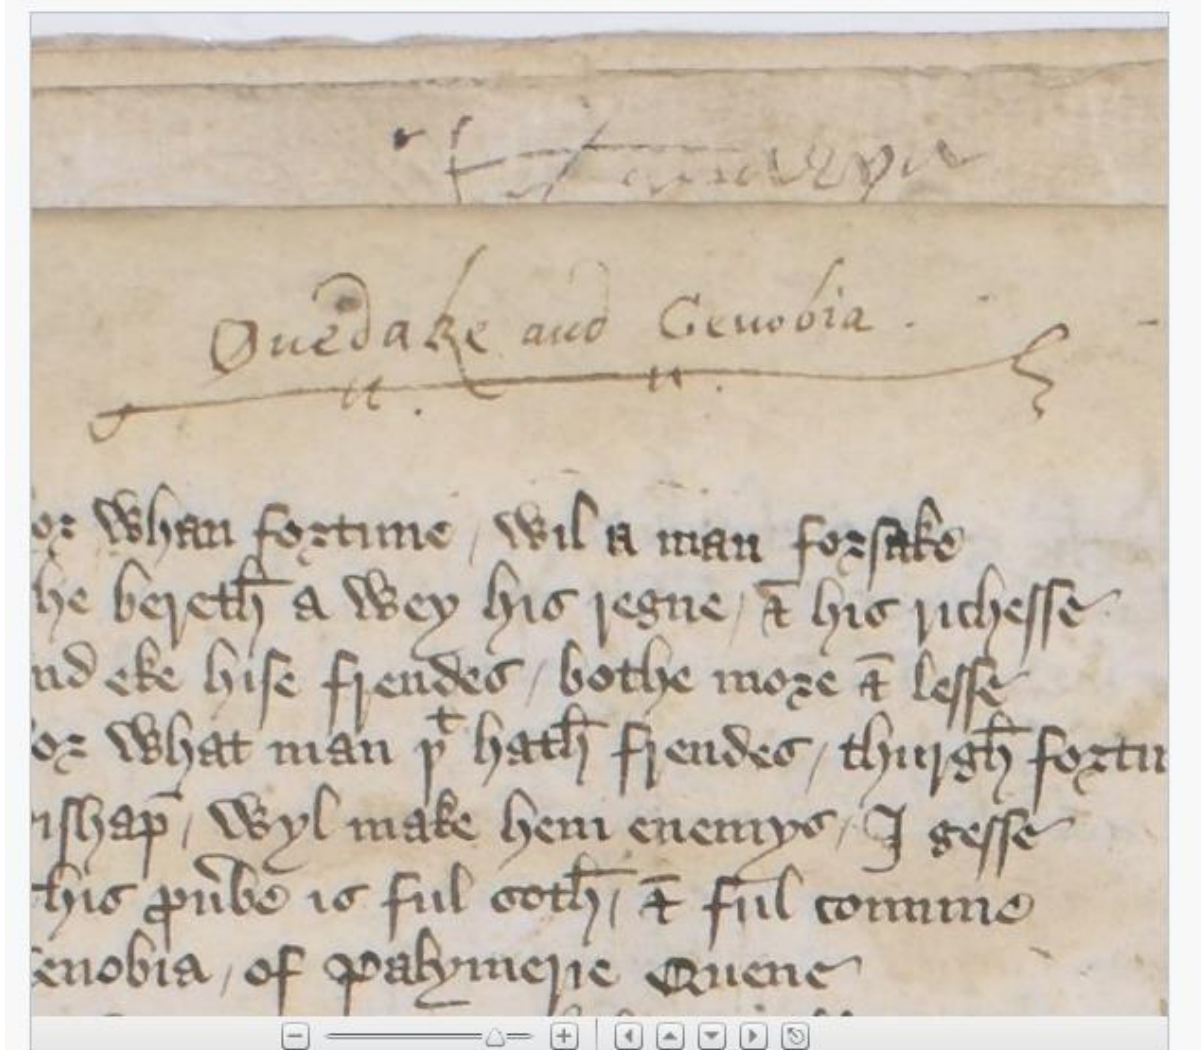 Ouedake and Cenobia .
or whan fortune / wil a man forsake
he bereth a wey his regne / & his richesse
nd eke hise frendes / bothe more & lesse
or what man þͭ hath frendes / thurgh fortu
ishap̄ / wyl make hem enemys / I gesse
his ꝓuͥbe is ful soth / & ful comune
enobia / of Palymerie Quene